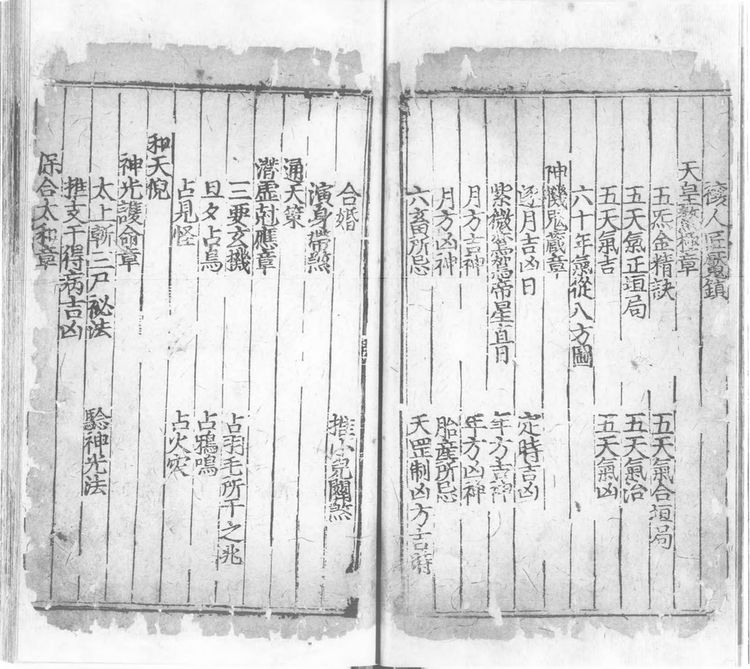 人匠魘鎮
天皇鰲極章
五炁金精訣 五天氣合垣局
五天氣正垣局 五天氣治
五天氣吉 五天氣凶
六十年氣從八方圖
神機鬼藏章
逐月吉凶日 定時吉凶
紫微鸞駕帝星直日 年方吉神
月方吉神 年方凶神
月方凶神 胎產所忌
六畜所忌 天罡制凶方吉時
合婚 推小兒關煞
演身帶煞
通天策
潛虛尅應章
三要玄機 占羽毛所干之兆
旦夕占鳥 占鴉鳴
占見怪 占火
和天倪
神光護命章
太上斬三尸祕法 驗神光法
推支干得病吉凶
保合太和章